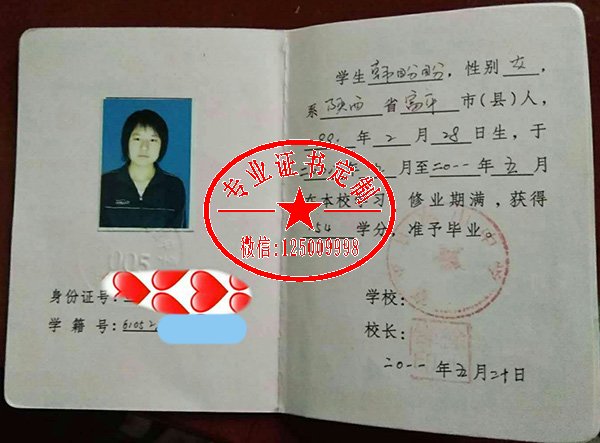 005
身份证号:
学籍号: 61052
学生 韩盼盼, 性别 女,
系 陕西 省 富平 市(县)人,
年 2 月 28 日生, 于
月至二〇一一年 五 月
在本校学习 修业期满, 获得
54 学分, 准予毕业。
学校:
校长:
二〇一一 年 五 月 二十 日
专业证书定制
微信:125009998